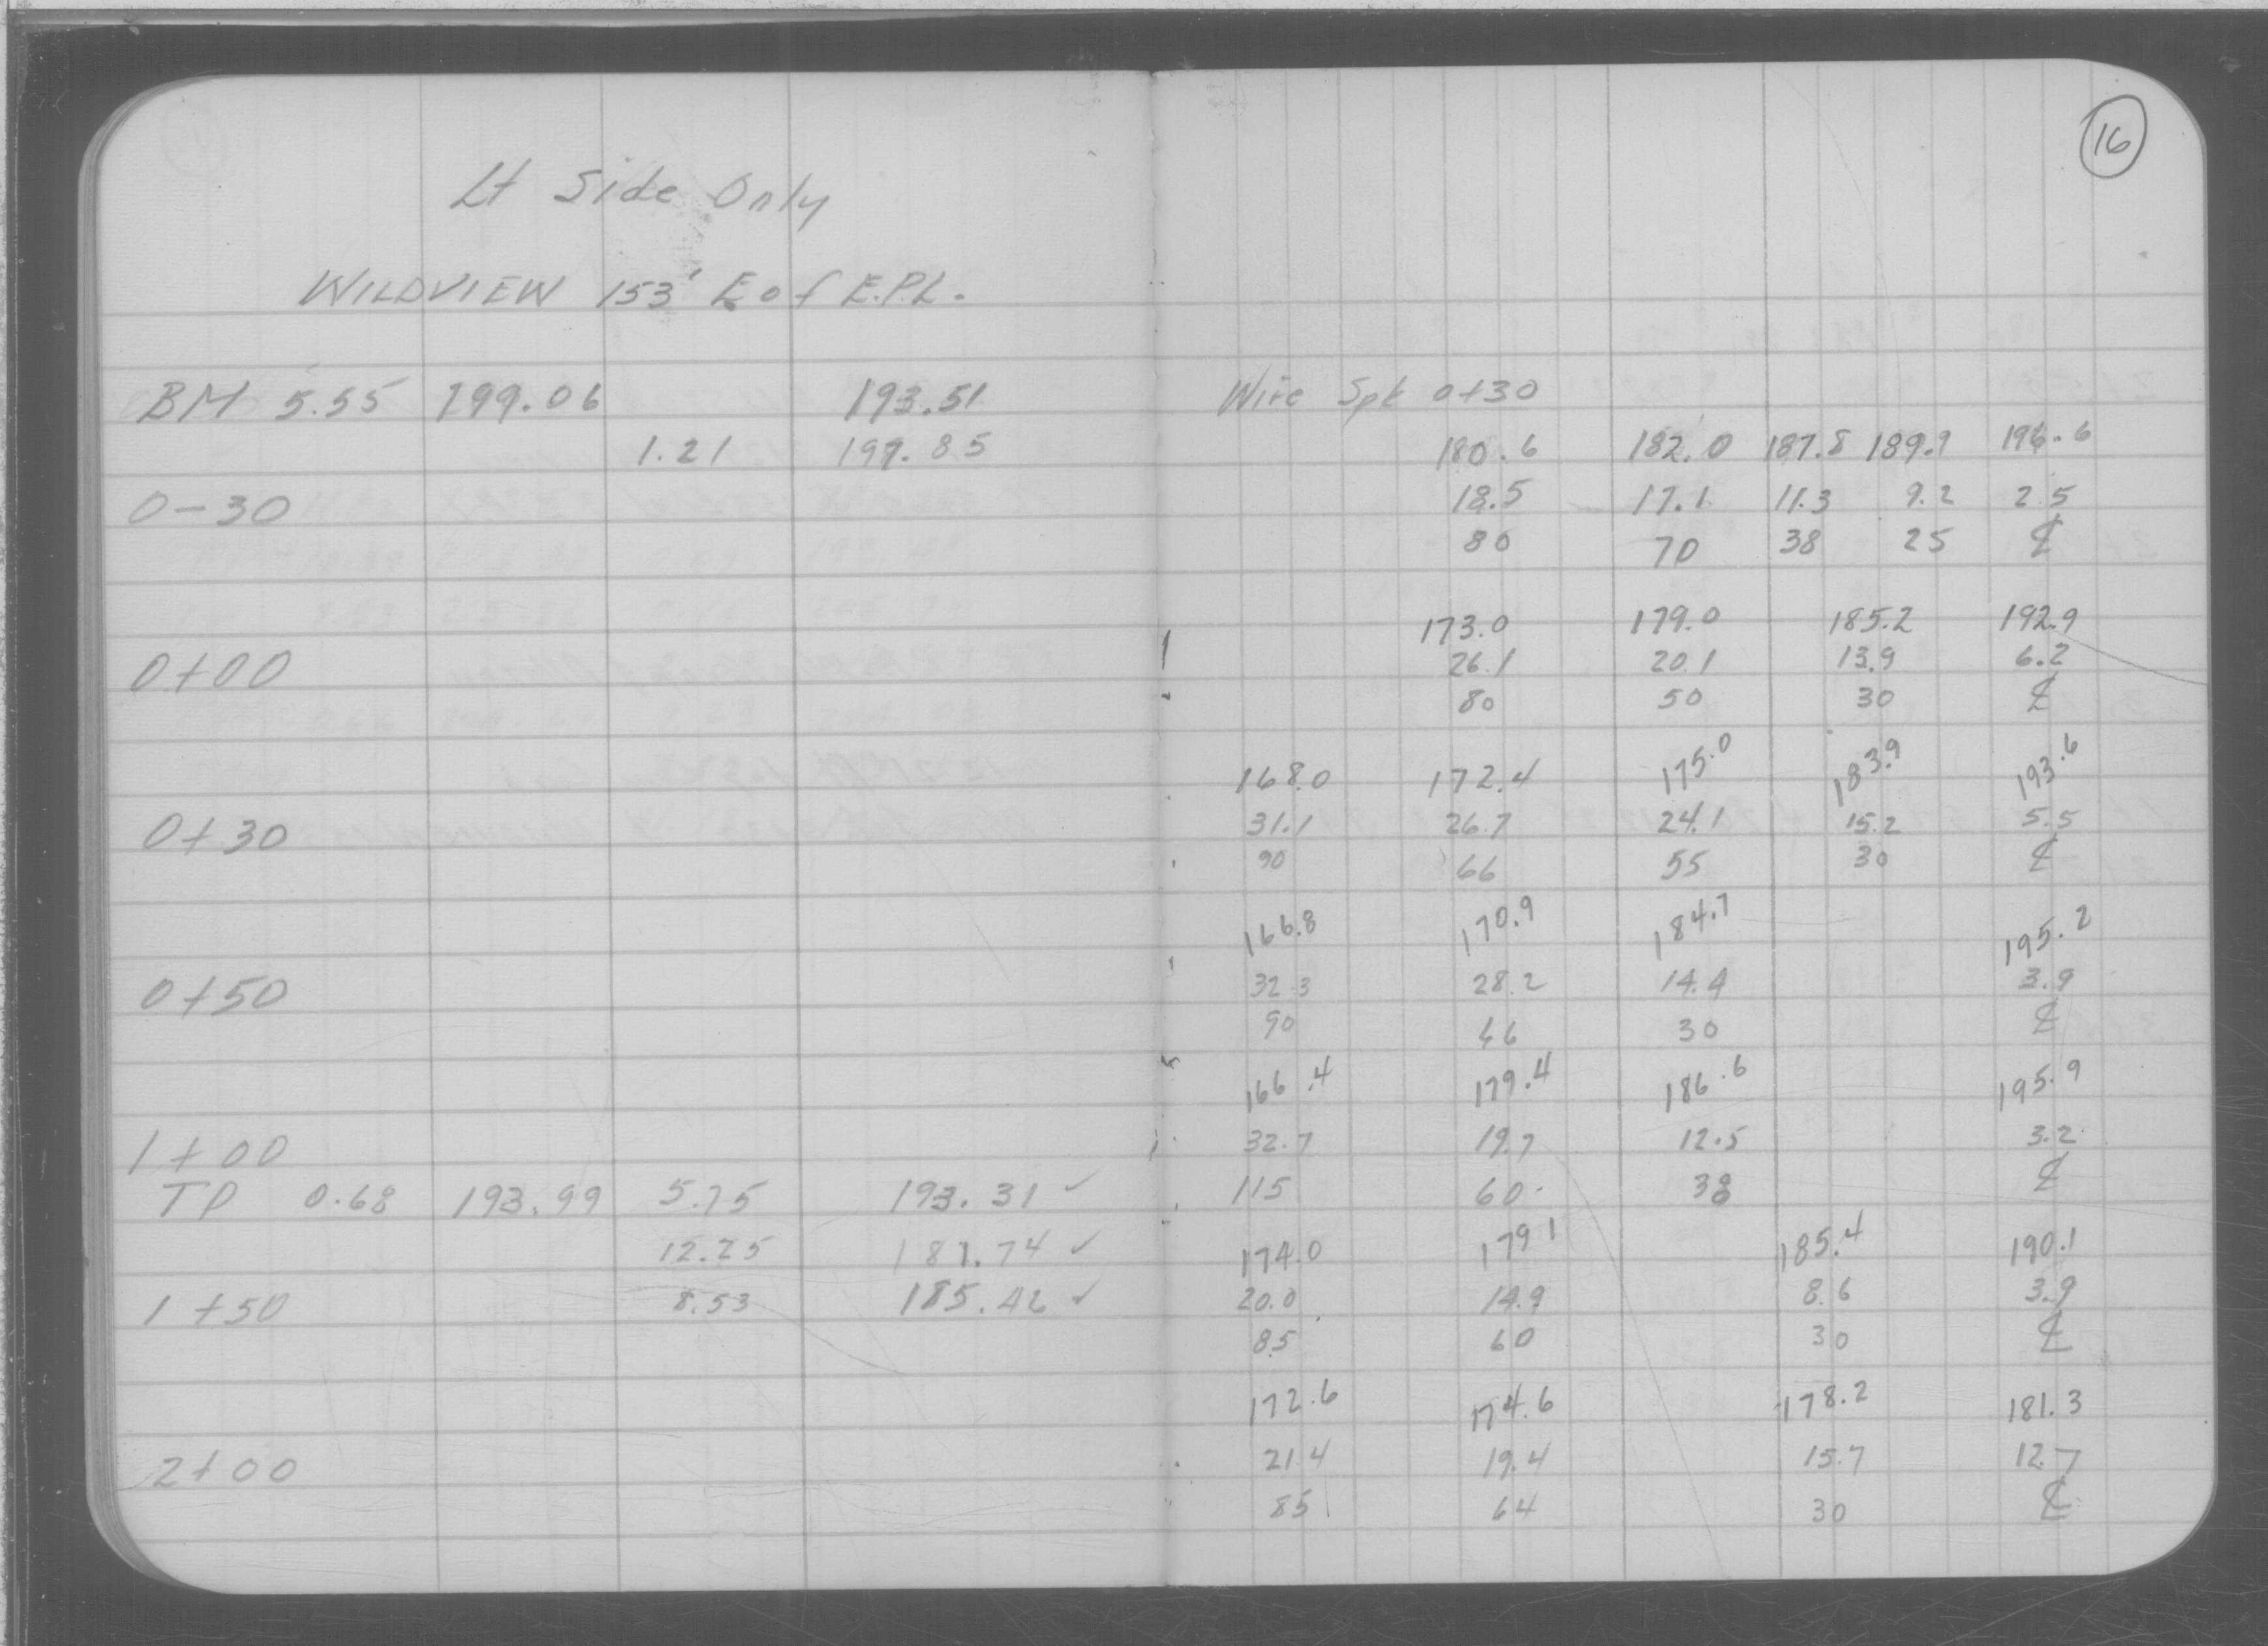 16
Lt Side Only
WILDVIEW 153' E of E.P.L.
BM 5.55 199.06 193.51 Wire Spk 0+30
1.21 197.85 180.6 182.0 187.8 189.9 196.6
0-30 18.5 17.1 11.3 9.2 2.5
80 70 38 25 ℄
173.0 179.0 185.2 192.9
0+00 26.1 20.1 13.9 6.2
80 50 30 ℄
168.0 172.4 175.0 183.9 193.6
0+30 31.1 26.7 24.1 15.2 5.5
90 66 55 30 ℄
166.8 170.9 184.7 195.2
0+50 32.3 28.2 14.4 3.9
90 66 30 ℄
166.4 179.4 186.6 195.9
1+00 32.7 19.7 12.5 3.2
TP 0.68 193.99 5.75 193.31 ✓ 115 60 38 ℄
12.25 181.74 ✓ 174.0 179.1 185.4 190.1
1+50 8.53 185.46 ✓ 20.0 14.9 8.6 3.9
85 60 30 ℄
172.6 174.6 178.2 181.3
2+00 21.4 19.4 15.7 12.7
85 64 30 ℄